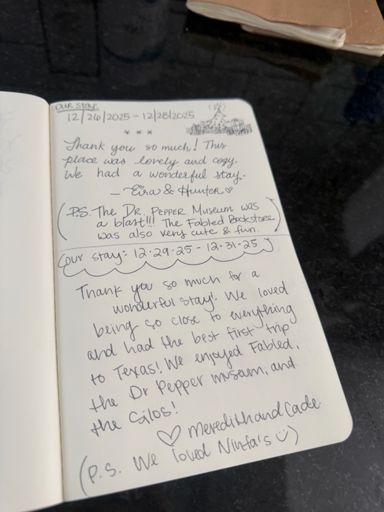 OUR STAY:
12/26/2025 - 12/28/2025
* * *
Thank you so much! This
place was lovely and cozy.
We had a wonderful stay.
- Eira & Hunter ♡
(P.S. The DR. PEPPER Museum was
a blast!!! The Fabled Bookstore
was also very cute & fun.)
Our stay: 12.29.25 - 12.31.25
Thank you so much for a
wonderful stay! We loved
being so close to everything
and had the best first trip
to Texas! We enjoyed Fabled,
the Dr Pepper museum, and
the Silos!
♡ Meredith and Cade
(P.S. We loved Ninfa's ☺)